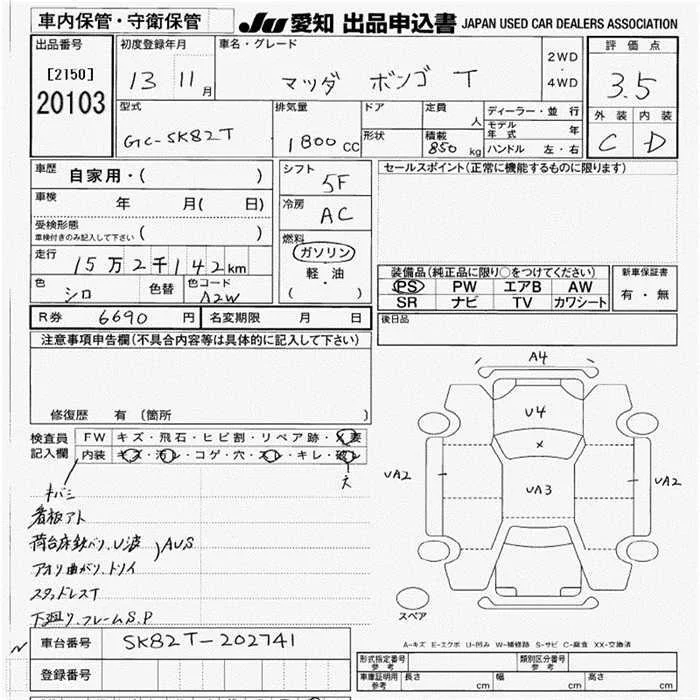 車内保管・守衛保管 JU 愛知 出品申込書 JAPAN USED CAR DEALERS ASSOCIATION
出品番号 初度登録年月 車名・グレード 2WD・4WD 評価点
[2150] 20103 13 11月 マツダ ボンゴ T 3.5
型式 排気量 ドア 定員 人 ディーラー・並行 外装 内装
GC-SK82T 1800cc 形状 積載 850kg モデル年式 年 C D
ハンドル 左・右
車歴 自家用・( ) シフト 5F セールスポイント(正常に機能するものに限ります)
車検 年 月( 日) 冷房 AC
受検形態 車検付きのみ記入して下さい ( )
燃料 ガソリン 軽・油 ( )
走行 15万2千142km
色 シロ 色替 色コード A2W
装備品(純正品に限り○をつけてください) 新車保証書
PS PW エアB AW 有・無
SR ナビ TV カワシート
R券 6690円 名変期限 月 日 後日品
注意事項申告欄(不具合内容等は具体的に記入して下さい)
修復歴 有(箇所 )
検査員記入欄 FW キズ・飛石・ヒビ割・リペア跡・X要
内装 キズ・汚レ・コゲ・穴・スレ・キレ・破レ
大
キバミ
看板アト
荷台床鉄バリ、U波
アオリ曲がり、トソイ
) AUS
スタッドレスT
下廻り、フレームS.P
A4
U4
X
UA2 UA3 UA2
スペア
車台番号 SK82T-202741
登録番号
A-キズ E-エクボ U-凹み W-補修跡 S-サビ C-腐食 XX-交換済
形式指定番号 参考 類別区分番号 参考
車庫証明用 参考 長さ cm 幅 cm 高さ cm